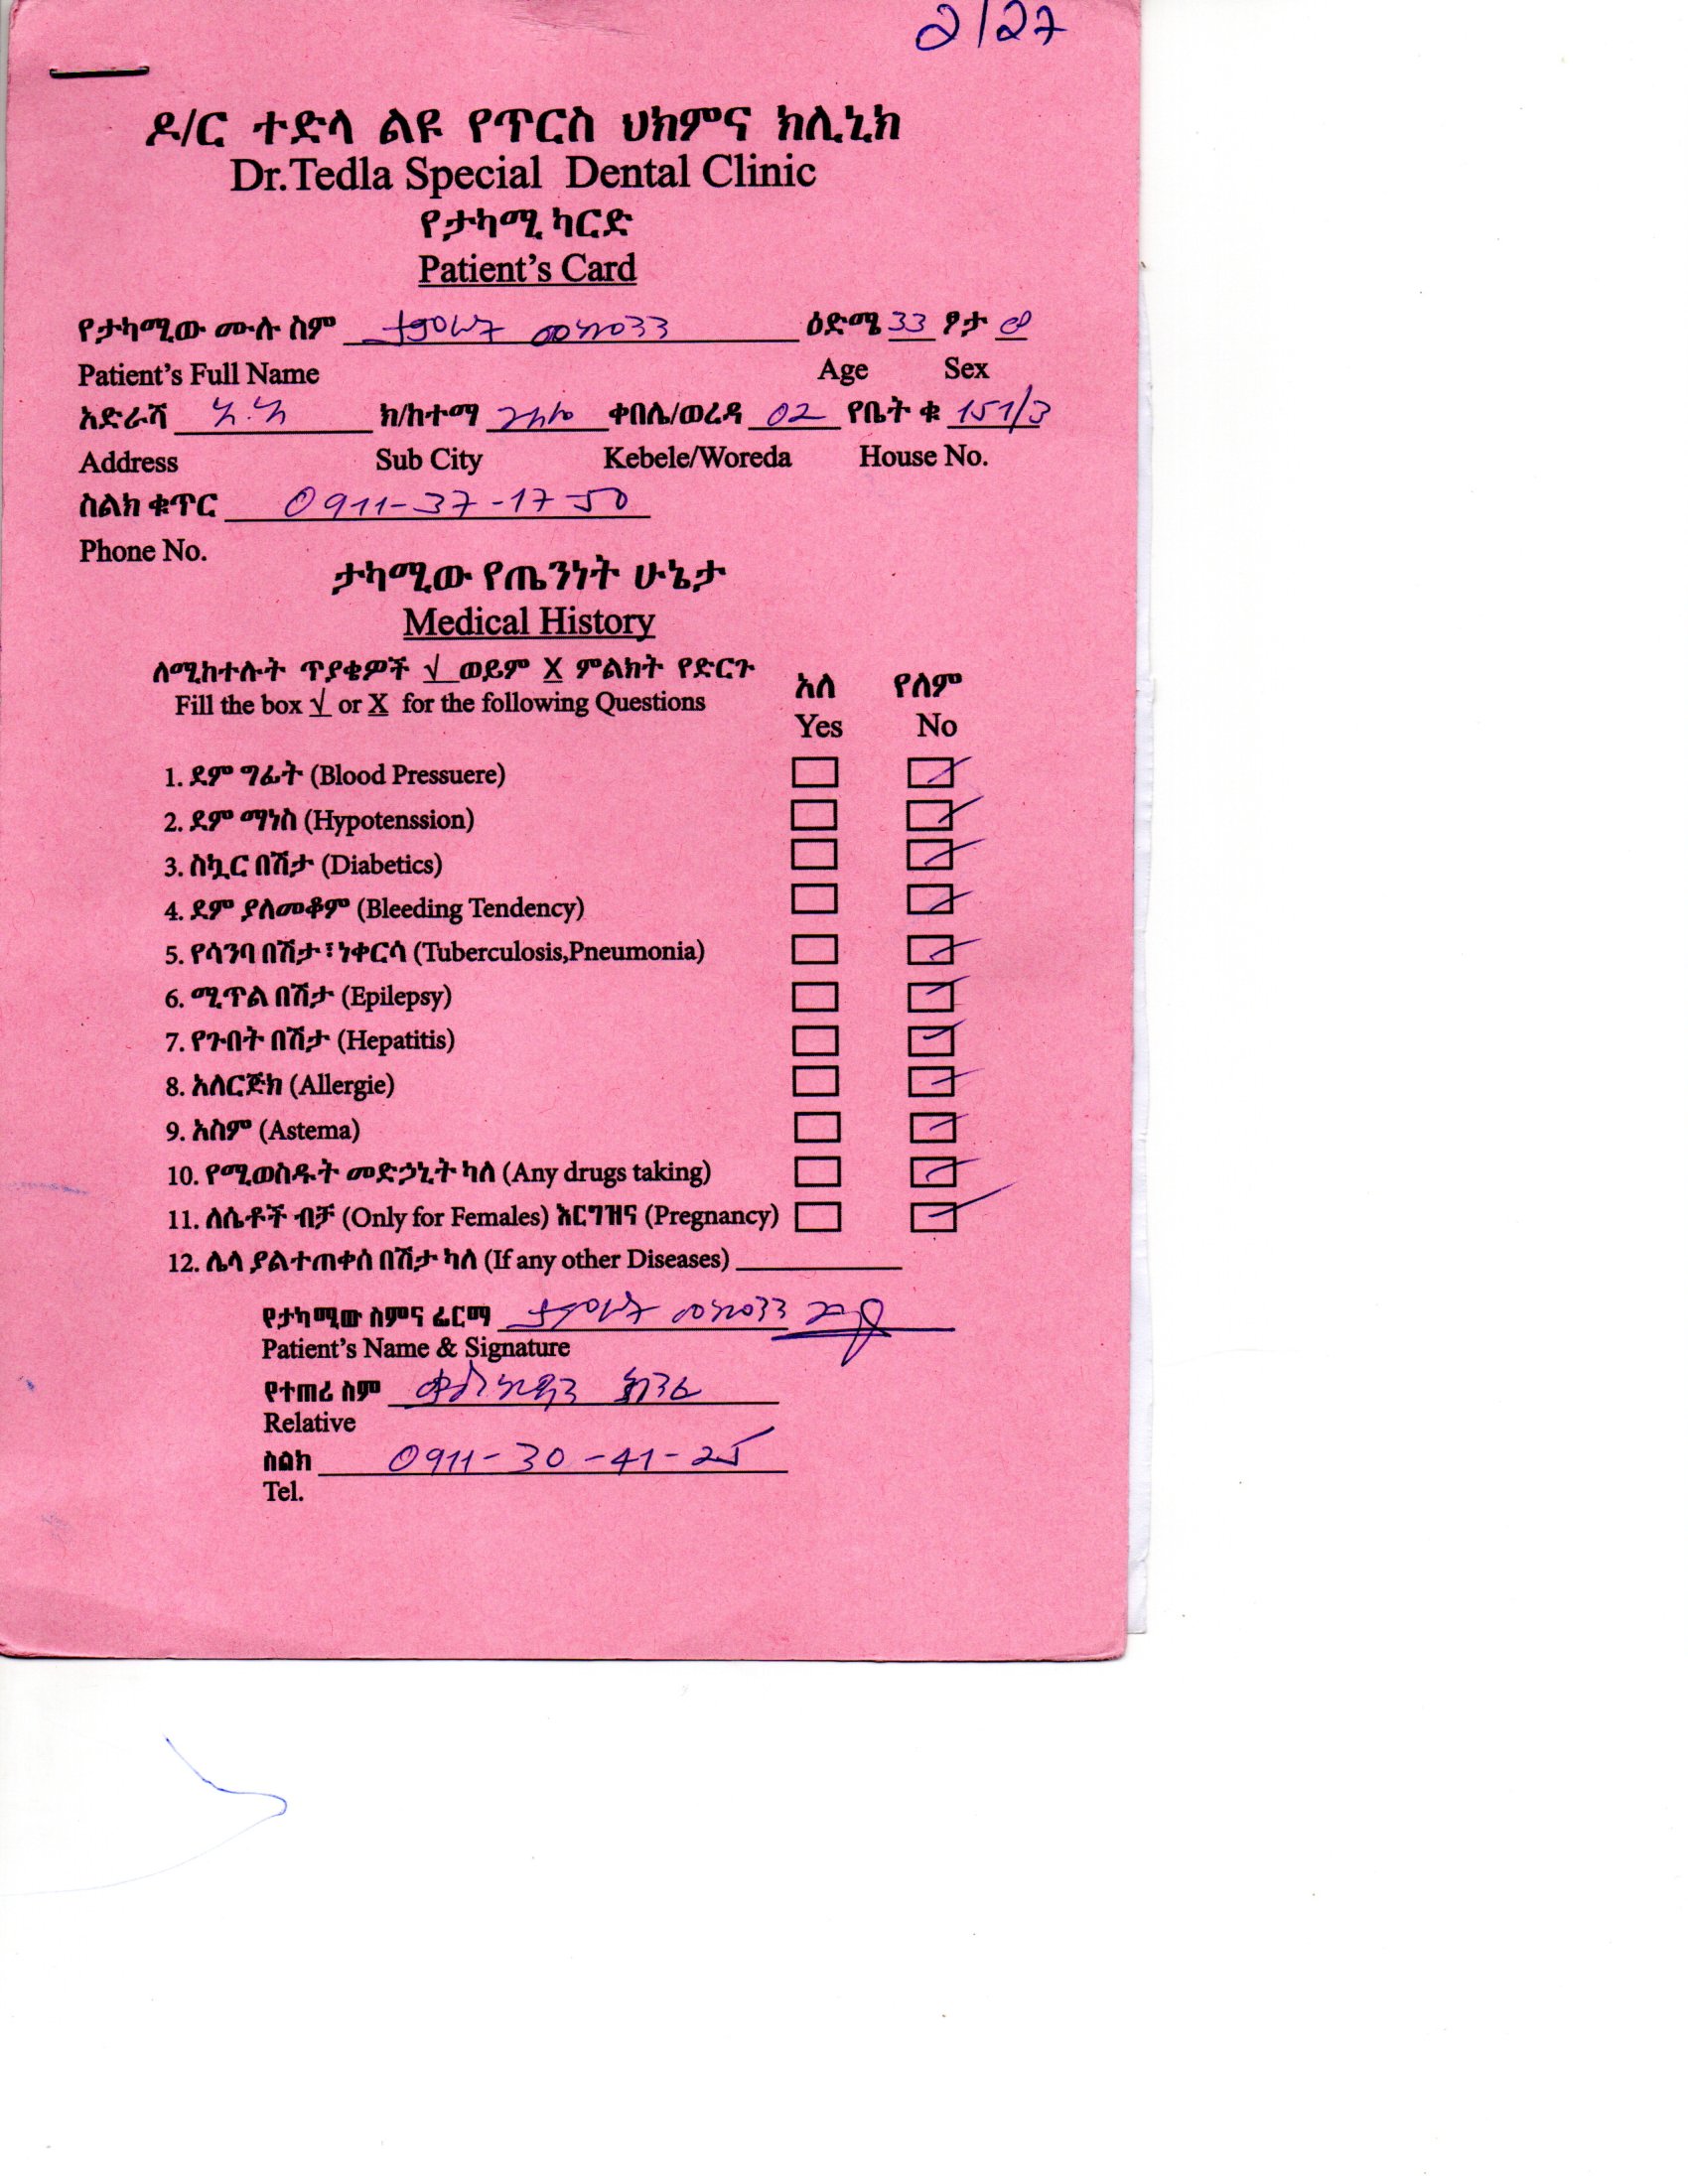 2/27
ዶ/ር ተድላ ልዩ የጥርስ ህክምና ክሊኒክ
Dr.Tedla Special Dental Clinic
የታካሚ ካርድ
Patient's Card
የታካሚው ሙሉ ስም ዕድሜ 33 ፆታ
Patient's Full Name Age Sex
አድራሻ አ.አ ክ/ከተማ ቀበሌ/ወረዳ 02 የቤት ቁ 151/3
Address Sub City Kebele/Woreda House No.
ስልክ ቁጥር 0911-37-17-50
Phone No.
ታካሚው የጤንነት ሁኔታ
Medical History
ለሚከተሉት ጥያቄዎች √ ወይም X ምልክት የድርጉ
Fill the box √ or X for the following Questions
አለ የለም
Yes No
1. ደም ግፊት (Blood Pressuere)
2. ደም ማነስ (Hypotenssion)
3. ስኳር በሽታ (Diabetics)
4. ደም ያለመቆም (Bleeding Tendency)
5. የሳንባ በሽታ፣ነቀርሳ (Tuberculosis,Pneumonia)
6. ሚጥል በሽታ (Epilepsy)
7. የጉበት በሽታ (Hepatitis)
8. አለርጅክ (Allergie)
9. አስም (Astema)
10. የሚወስዱት መድኃኒት ካለ (Any drugs taking)
11. ለሴቶች ብቻ (Only for Females) እርግዝና (Pregnancy)
12. ሌላ ያልተጠቀሰ በሽታ ካለ (If any other Diseases)
የታካሚው ስምና ፊርማ
Patient's Name & Signature
የተጠሪ ስም
Relative
ስልክ 0911-30-41-25
Tel.